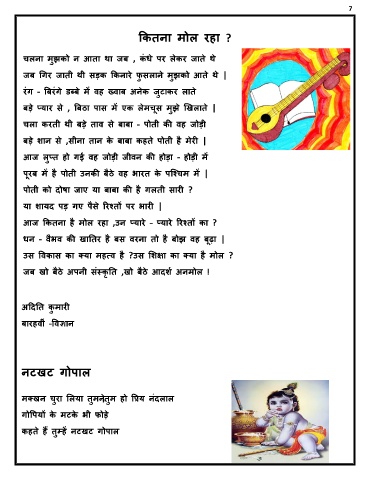 7
कितना मोल रहा ?
चलना मुझको न आता था जब , कंधे पर लेकर जाते थे
जब गिर जाती थी सड़क किनारे फुसलाने मुझको आते थे |
रंग - बिरंगे डब्बे में वह ख्वाब अनेक जुटाकर लाते
बड़े प्यार से , बिठा पास में एक लेमचूस मुझे खिलाते |
चला करती थी बड़े ताव से बाबा - पोती की वह जोड़ी
बड़े शान से ,सीना तान के बाबा कहते पोती है मेरी |
आज लुप्त हो गई वह जोड़ी जीवन की होड़ा - होड़ी में
पूरब में है पोती उनकी बैठे वह भारत के पश्चिम में |
पोती को दोषा जाए या बाबा की है गलती सारी ?
या शायद पड़ गए पैसे रिश्तों पर भारी |
आज कितना है मोल रहा ,उन प्यारे - प्यारे रिश्तों का ?
धन - वैभव की खातिर है बस वरना तो है बोझ वह बूढ़ा |
उस विकास का क्या महत्व है ?उस शिक्षा का क्या है मोल ?
जब खो बैठे अपनी संस्कृति ,खो बैठे आदर्श अनमोल !
अदिति कुमारी
बारहवीं -विज्ञान
नटखट गोपाल
मक्खन चुरा लिया तुमनेतुम हो प्रिय नंदलाल
गोपियों के मटके भी फोड़े
कहते हैं तुम्हें नटखट गोपाल